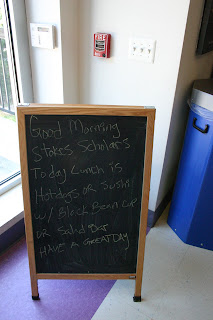 Good Morning
Stokes Scholars
Today Lunch is
Hotdogs OR Sushi
w/ Black Bean Cup
OR Salad Bar
HAVE A GREAT DAY